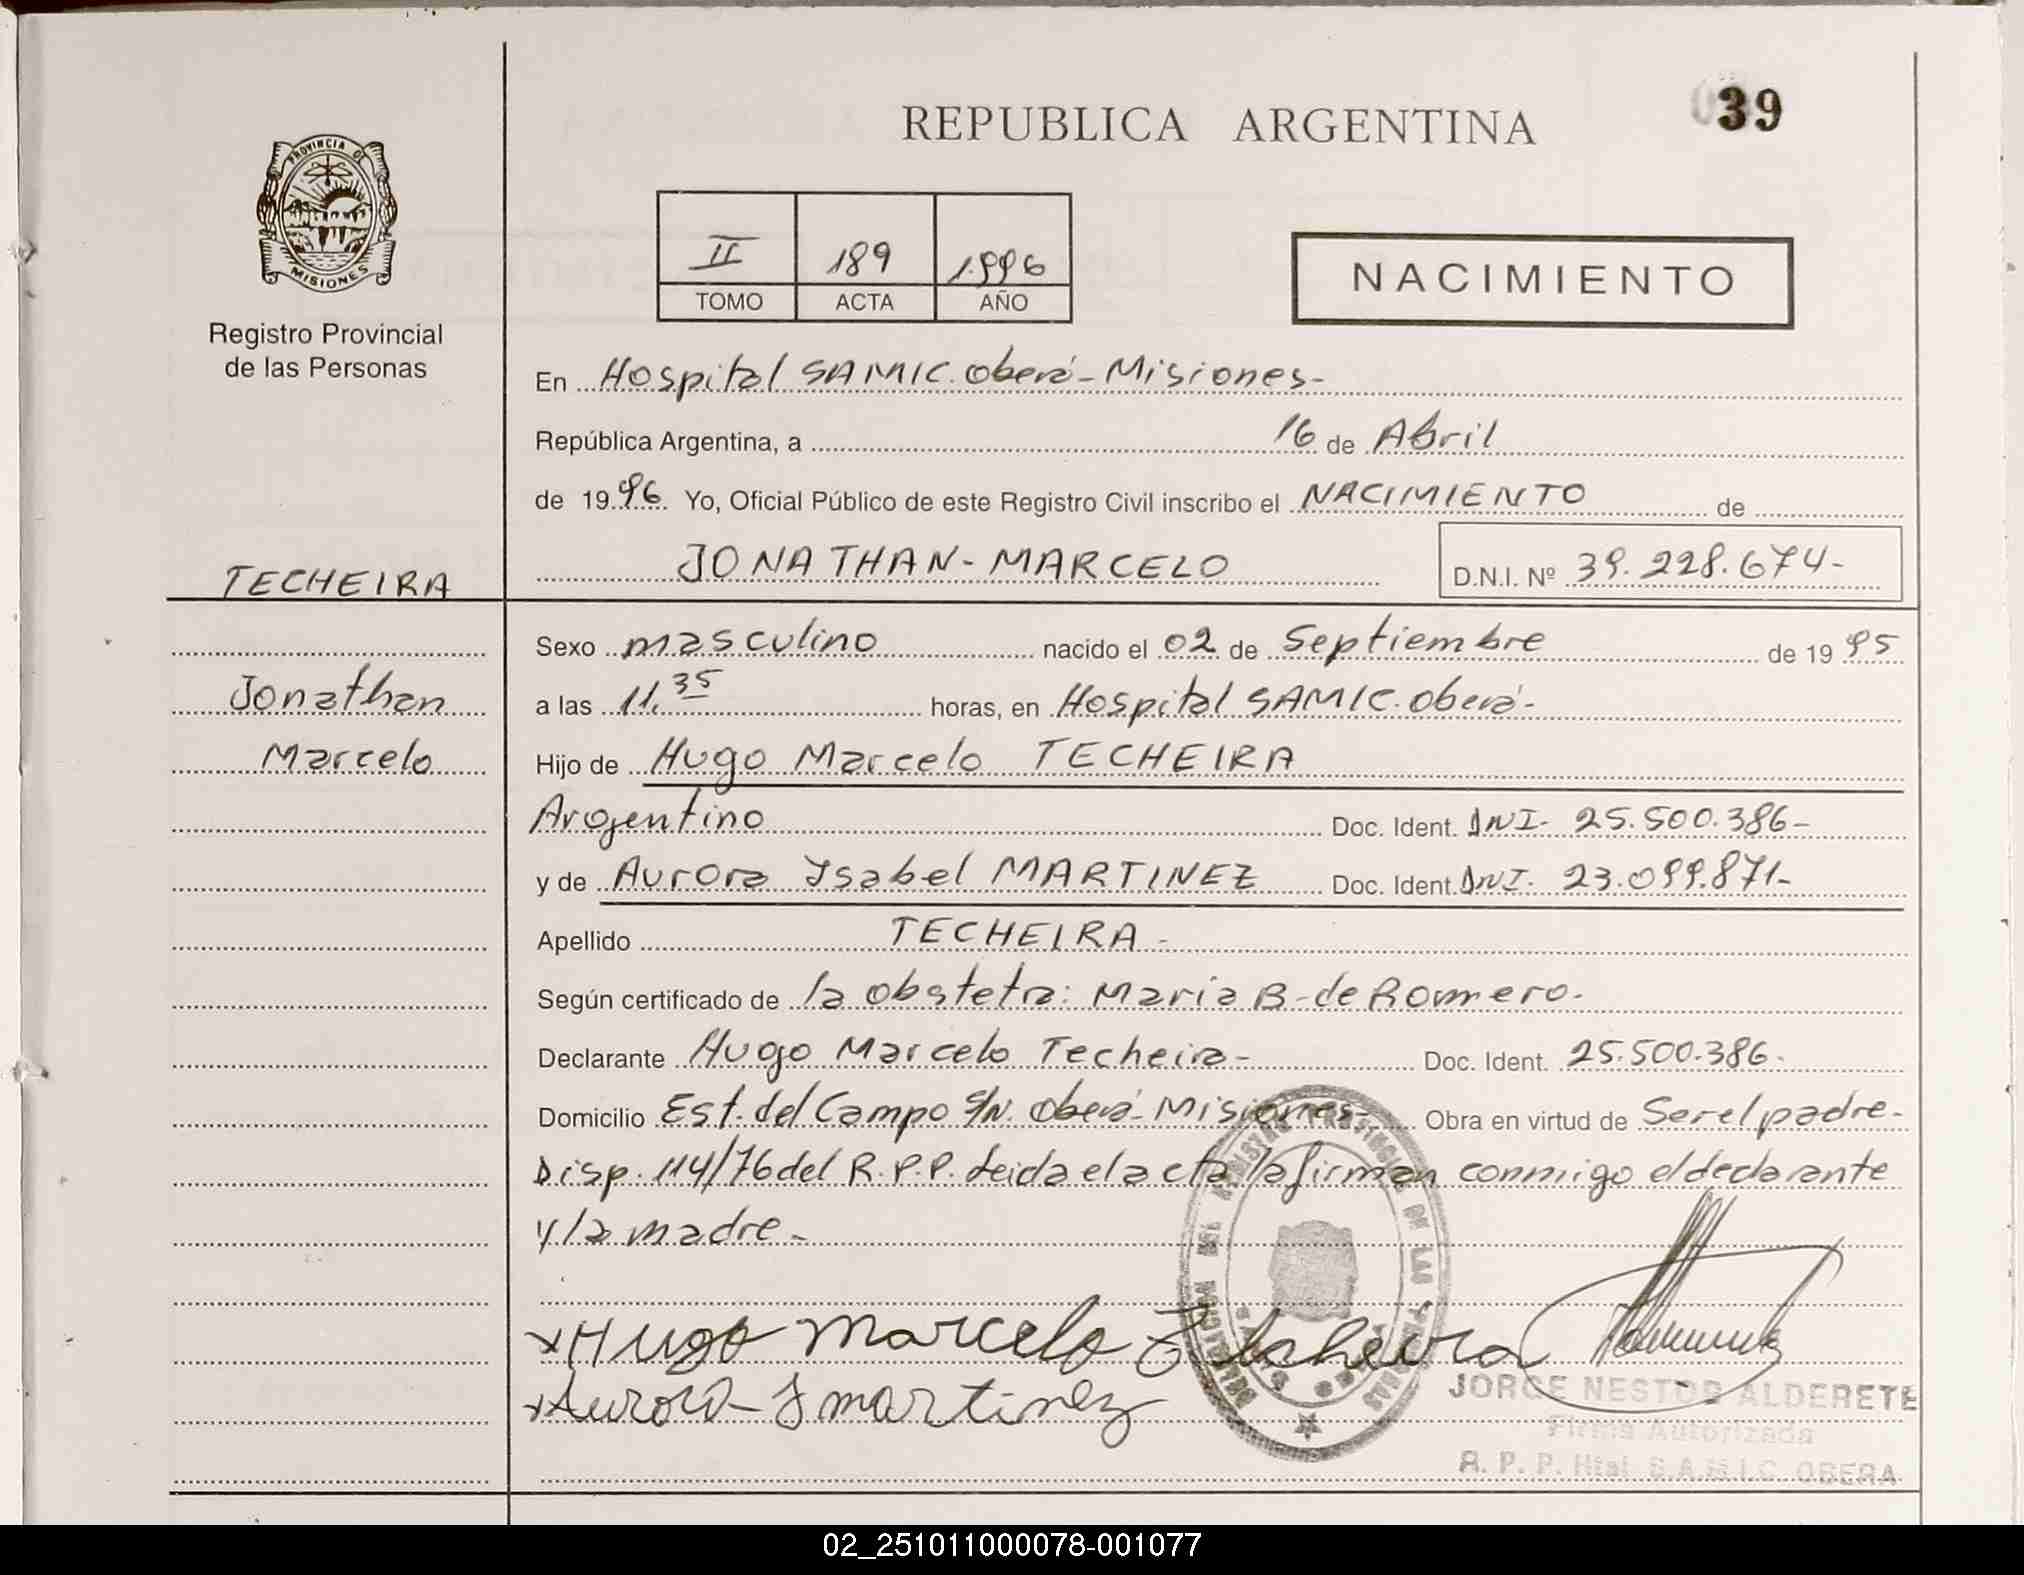 039
REPUBLICA ARGENTINA
PROVINCIA DE
MISIONES
Registro Provincial
de las Personas
II 189 1.996
TOMO ACTA AÑO
NACIMIENTO
En Hospital SAMIC. Oberá - Misiones-
República Argentina, a 16 de Abril
de 1996. Yo, Oficial Público de este Registro Civil inscribo el NACIMIENTO de
JONATHAN - MARCELO D.N.I. Nº 39.228.674-
TECHEIRA
Jonathan
Marcelo
Sexo masculino nacido el 02 de Septiembre de 1995
a las 11,35 horas, en Hospital SAMIC. Oberá-
Hijo de Hugo Marcelo TECHEIRA
Argentino Doc. Ident. DNI- 25.500.386-
y de Aurora Ysabel MARTINEZ Doc. Ident. DNI. 23.099.871-
Apellido TECHEIRA-
Según certificado de la obsteta: Maria B- de Romero-
Declarante Hugo Marcelo Techeira- Doc. Ident. 25.500.386-
Domicilio Est. del Campo S/N. Oberá- Misiones- Obra en virtud de Ser el padre-
Disp. 114/76 del R.P.P. Leida el acta la firman conmigo el declarante
y la madre-
x Hugo Marcelo Techeira
x Aurora Y martinez
DELEGACION DEL REGISTRO PROVINCIAL DE LAS PERSONAS
JORGE NESTOR ALDERETE
Firma Autorizada
R. P. P. Htal. S.A.M.I.C. OBERA
02_251011000078-001077